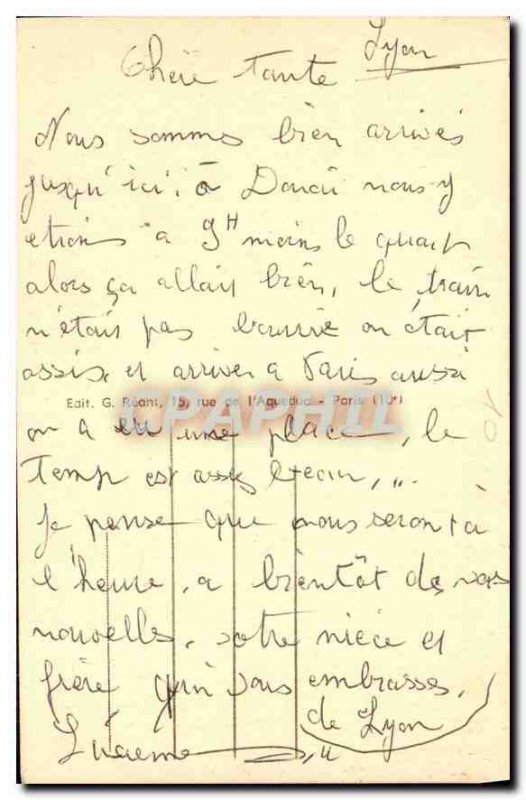 Lyon
Chère Tante
Nous sommes bien arrivés
jusqu'ici. à Douai nous y
etions à 9H moins le quart
alors ça allait bien, le train
n'était pas bourré on était
assis, et arriver a Paris aussi
Edit. G. Réant, 15, rue de l'Aqueduc - Paris (10e)
CPAPHIL
10
on a eu une place, le
temp est assez beau, ...
Je pense que nous seront à
l'heure, a bientôt de vos
nouvelles, votre nièce et
frère qui vous embrasses,
de Lyon